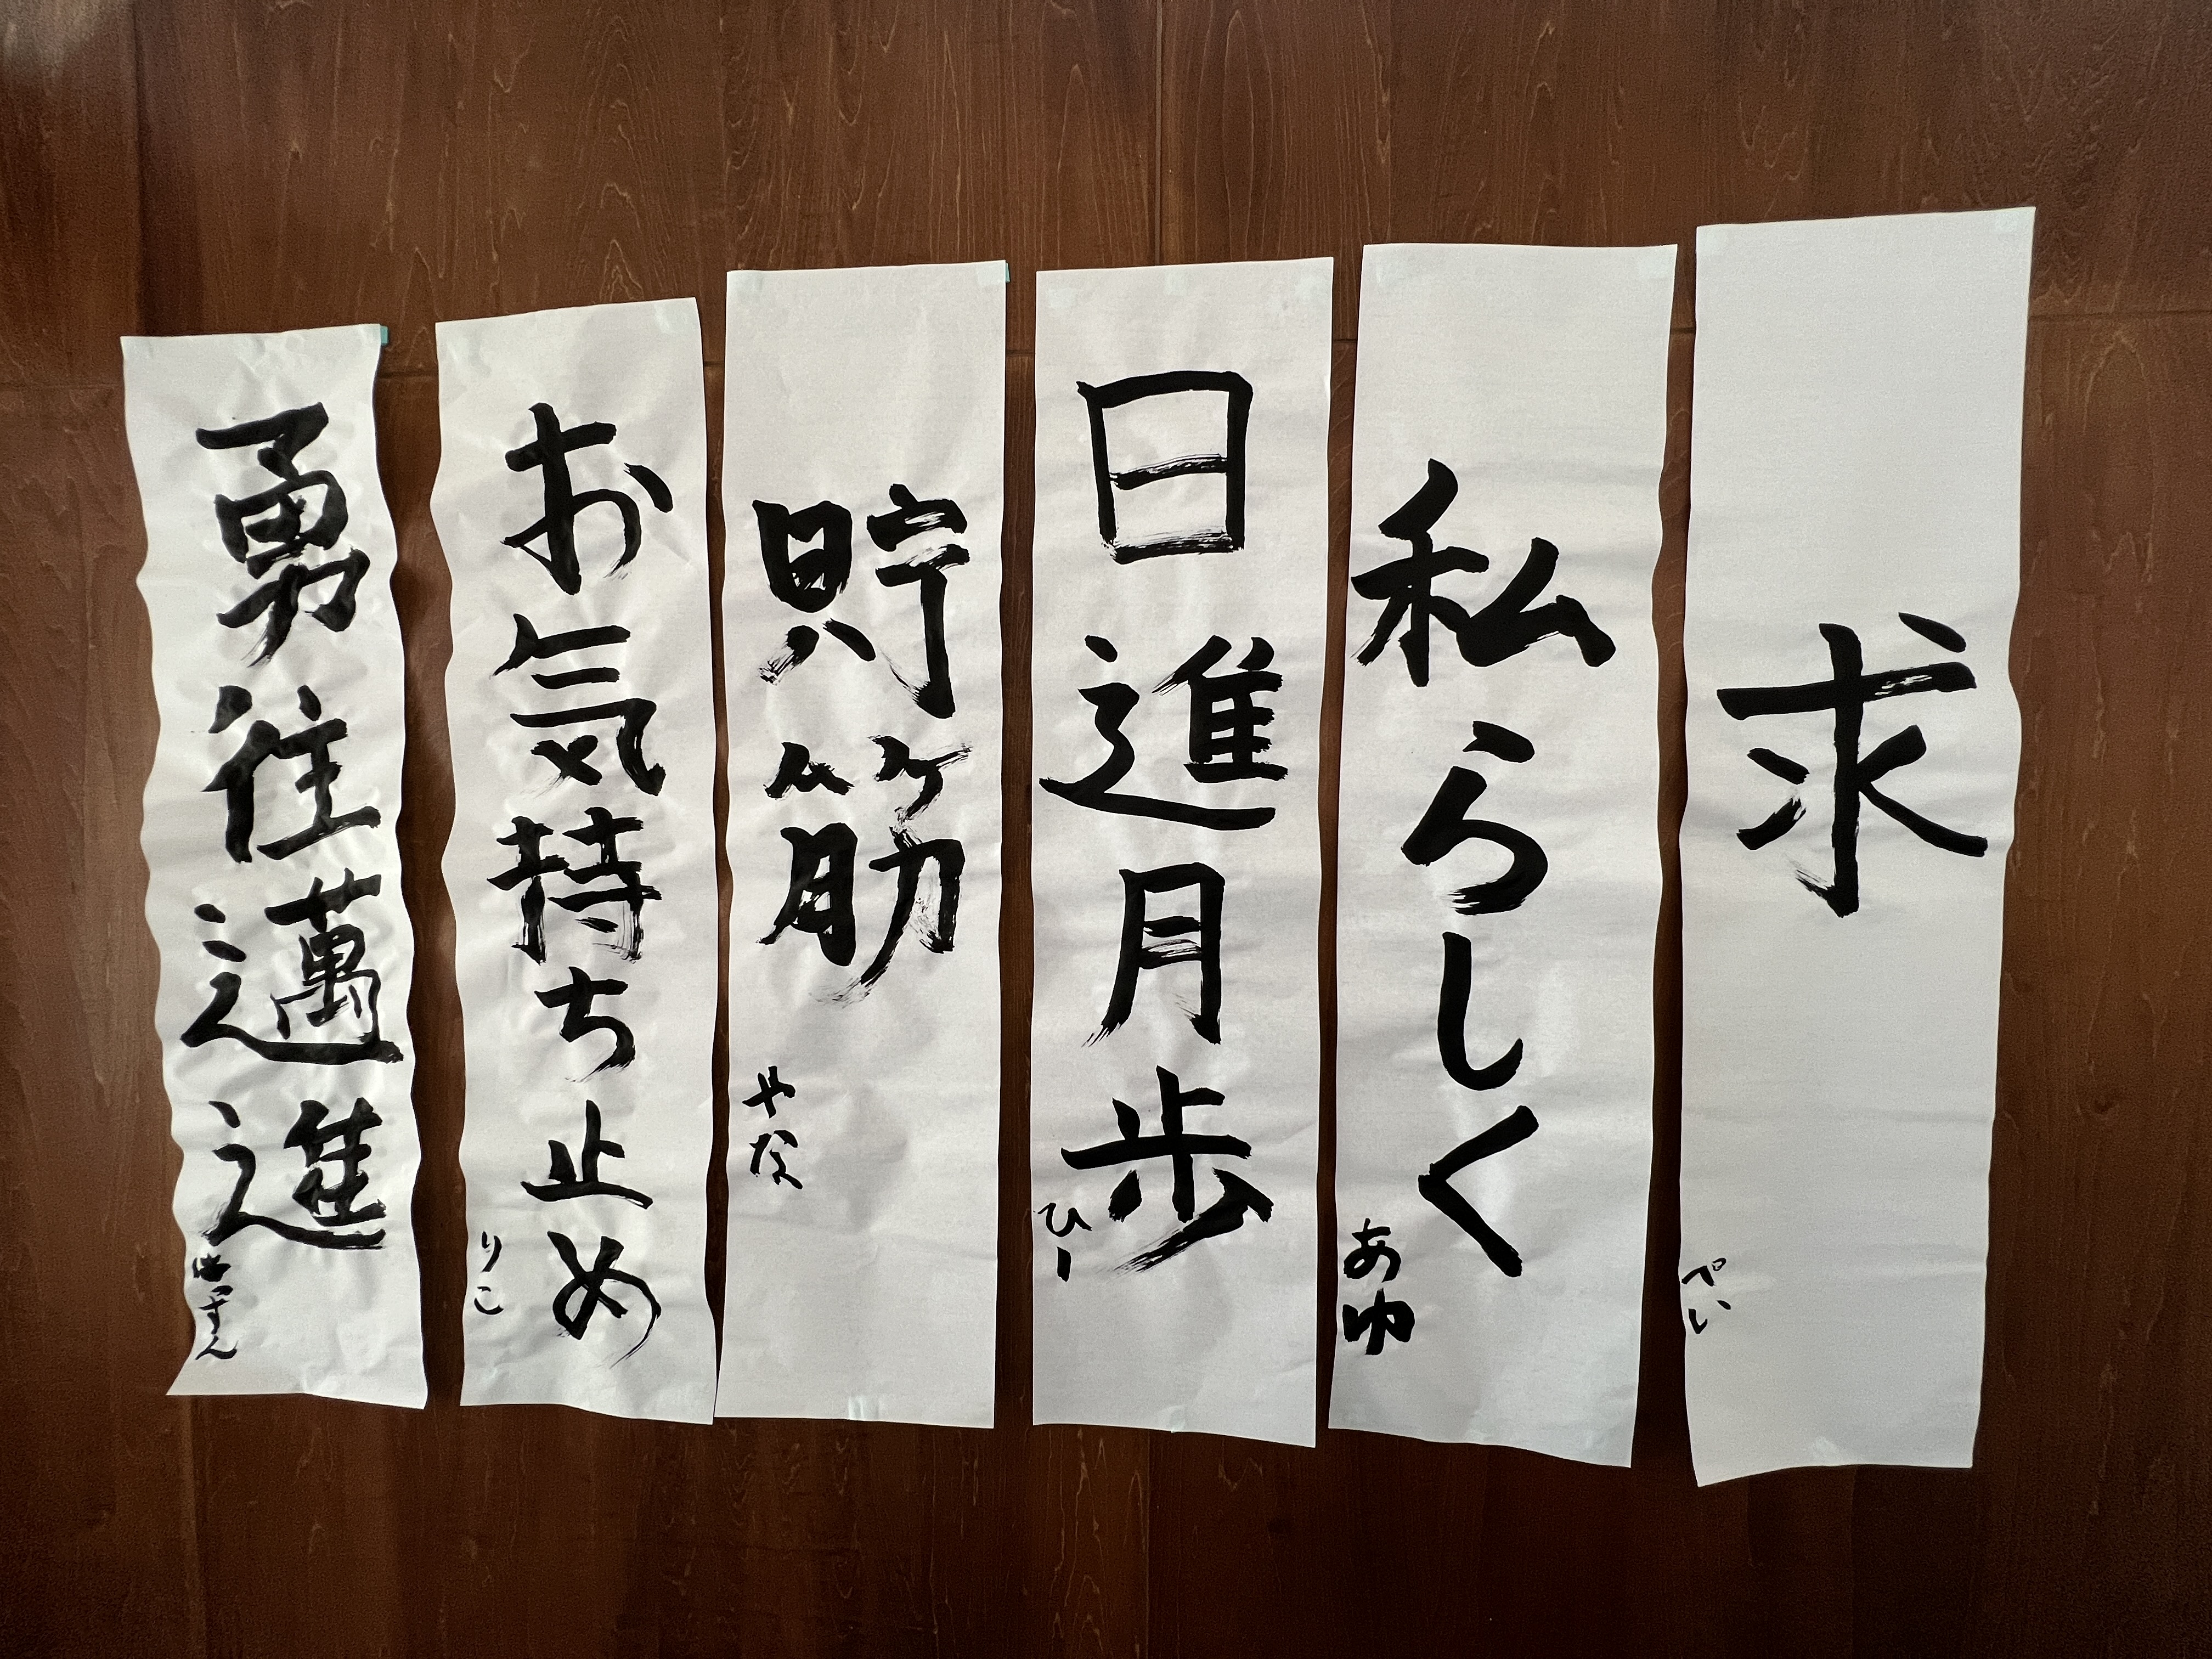 求
ぺい
私らしく
あゆ
日進月歩
ひー
貯筋
やな
お気持ち止め
りこ
勇往邁進
はっすん